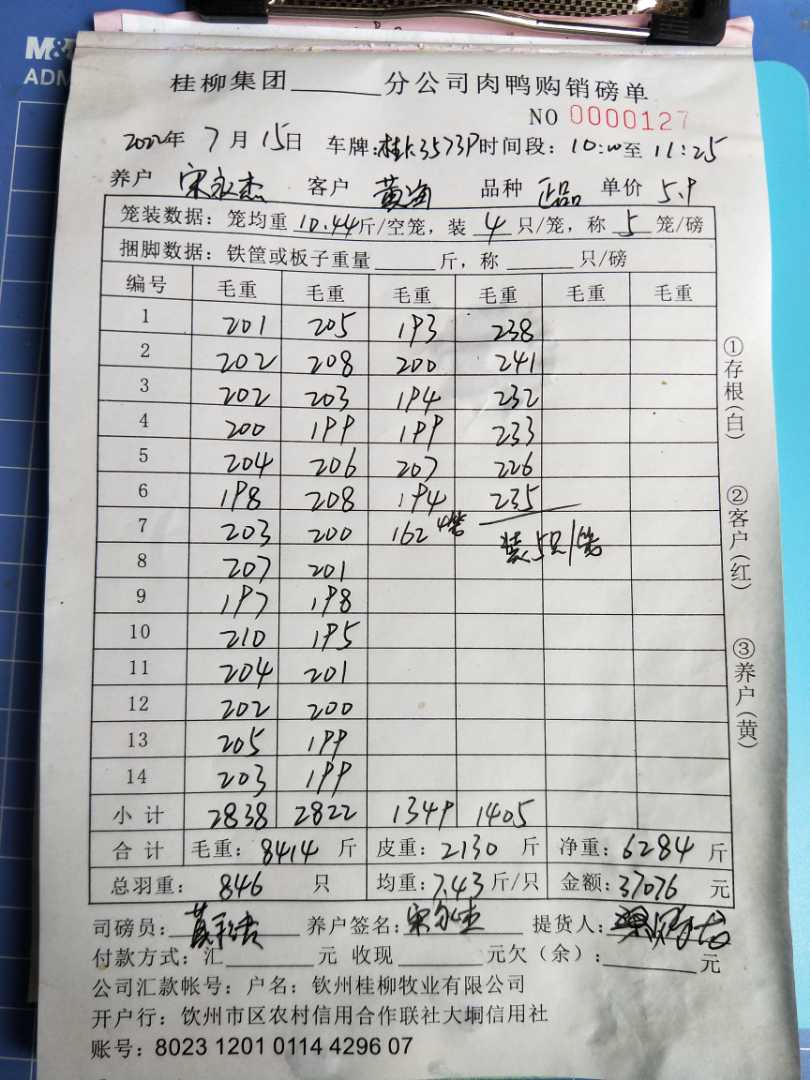 M&
ADM
桂柳集团______分公司肉鸭购销磅单
NO 0000127
2022年 7月15日 车牌:桂K3573P时间段: 10:00至 11:25
养户 宋永杰 客户 黄海 品种 正品 单价 5.9
笼装数据: 笼均重 10.44斤/空笼, 装 4 只/笼, 称 5 笼/磅
捆脚数据: 铁筐或板子重量______斤, 称______只/磅
编号 毛重 毛重 毛重 毛重 毛重 毛重
1 201 205 193 238
2 202 208 200 241
3 202 203 194 232
4 200 199 199 233
5 204 206 207 226
6 198 208 194 235
7 203 200 162 4笼 装5只/笼
8 207 201
9 197 198
10 210 195
11 204 201
12 202 200
13 205 199
14 203 199
小计 2838 2822 1349 1405
合计 毛重: 8414 斤 皮重: 2130 斤 净重: 6284 斤
总羽重: 846 只 均重: 7.43 斤/只 金额: 37076 元
司磅员: 养户签名: 宋永杰 提货人:
付款方式: 汇______元 收现______元欠(余):______元
公司汇款帐号: 户名: 钦州桂柳牧业有限公司
开户行: 钦州市区农村信用合作联社大垌信用社
账号: 8023 1201 0114 4296 07
①存根(白)
②客户(红)
③养户(黄)